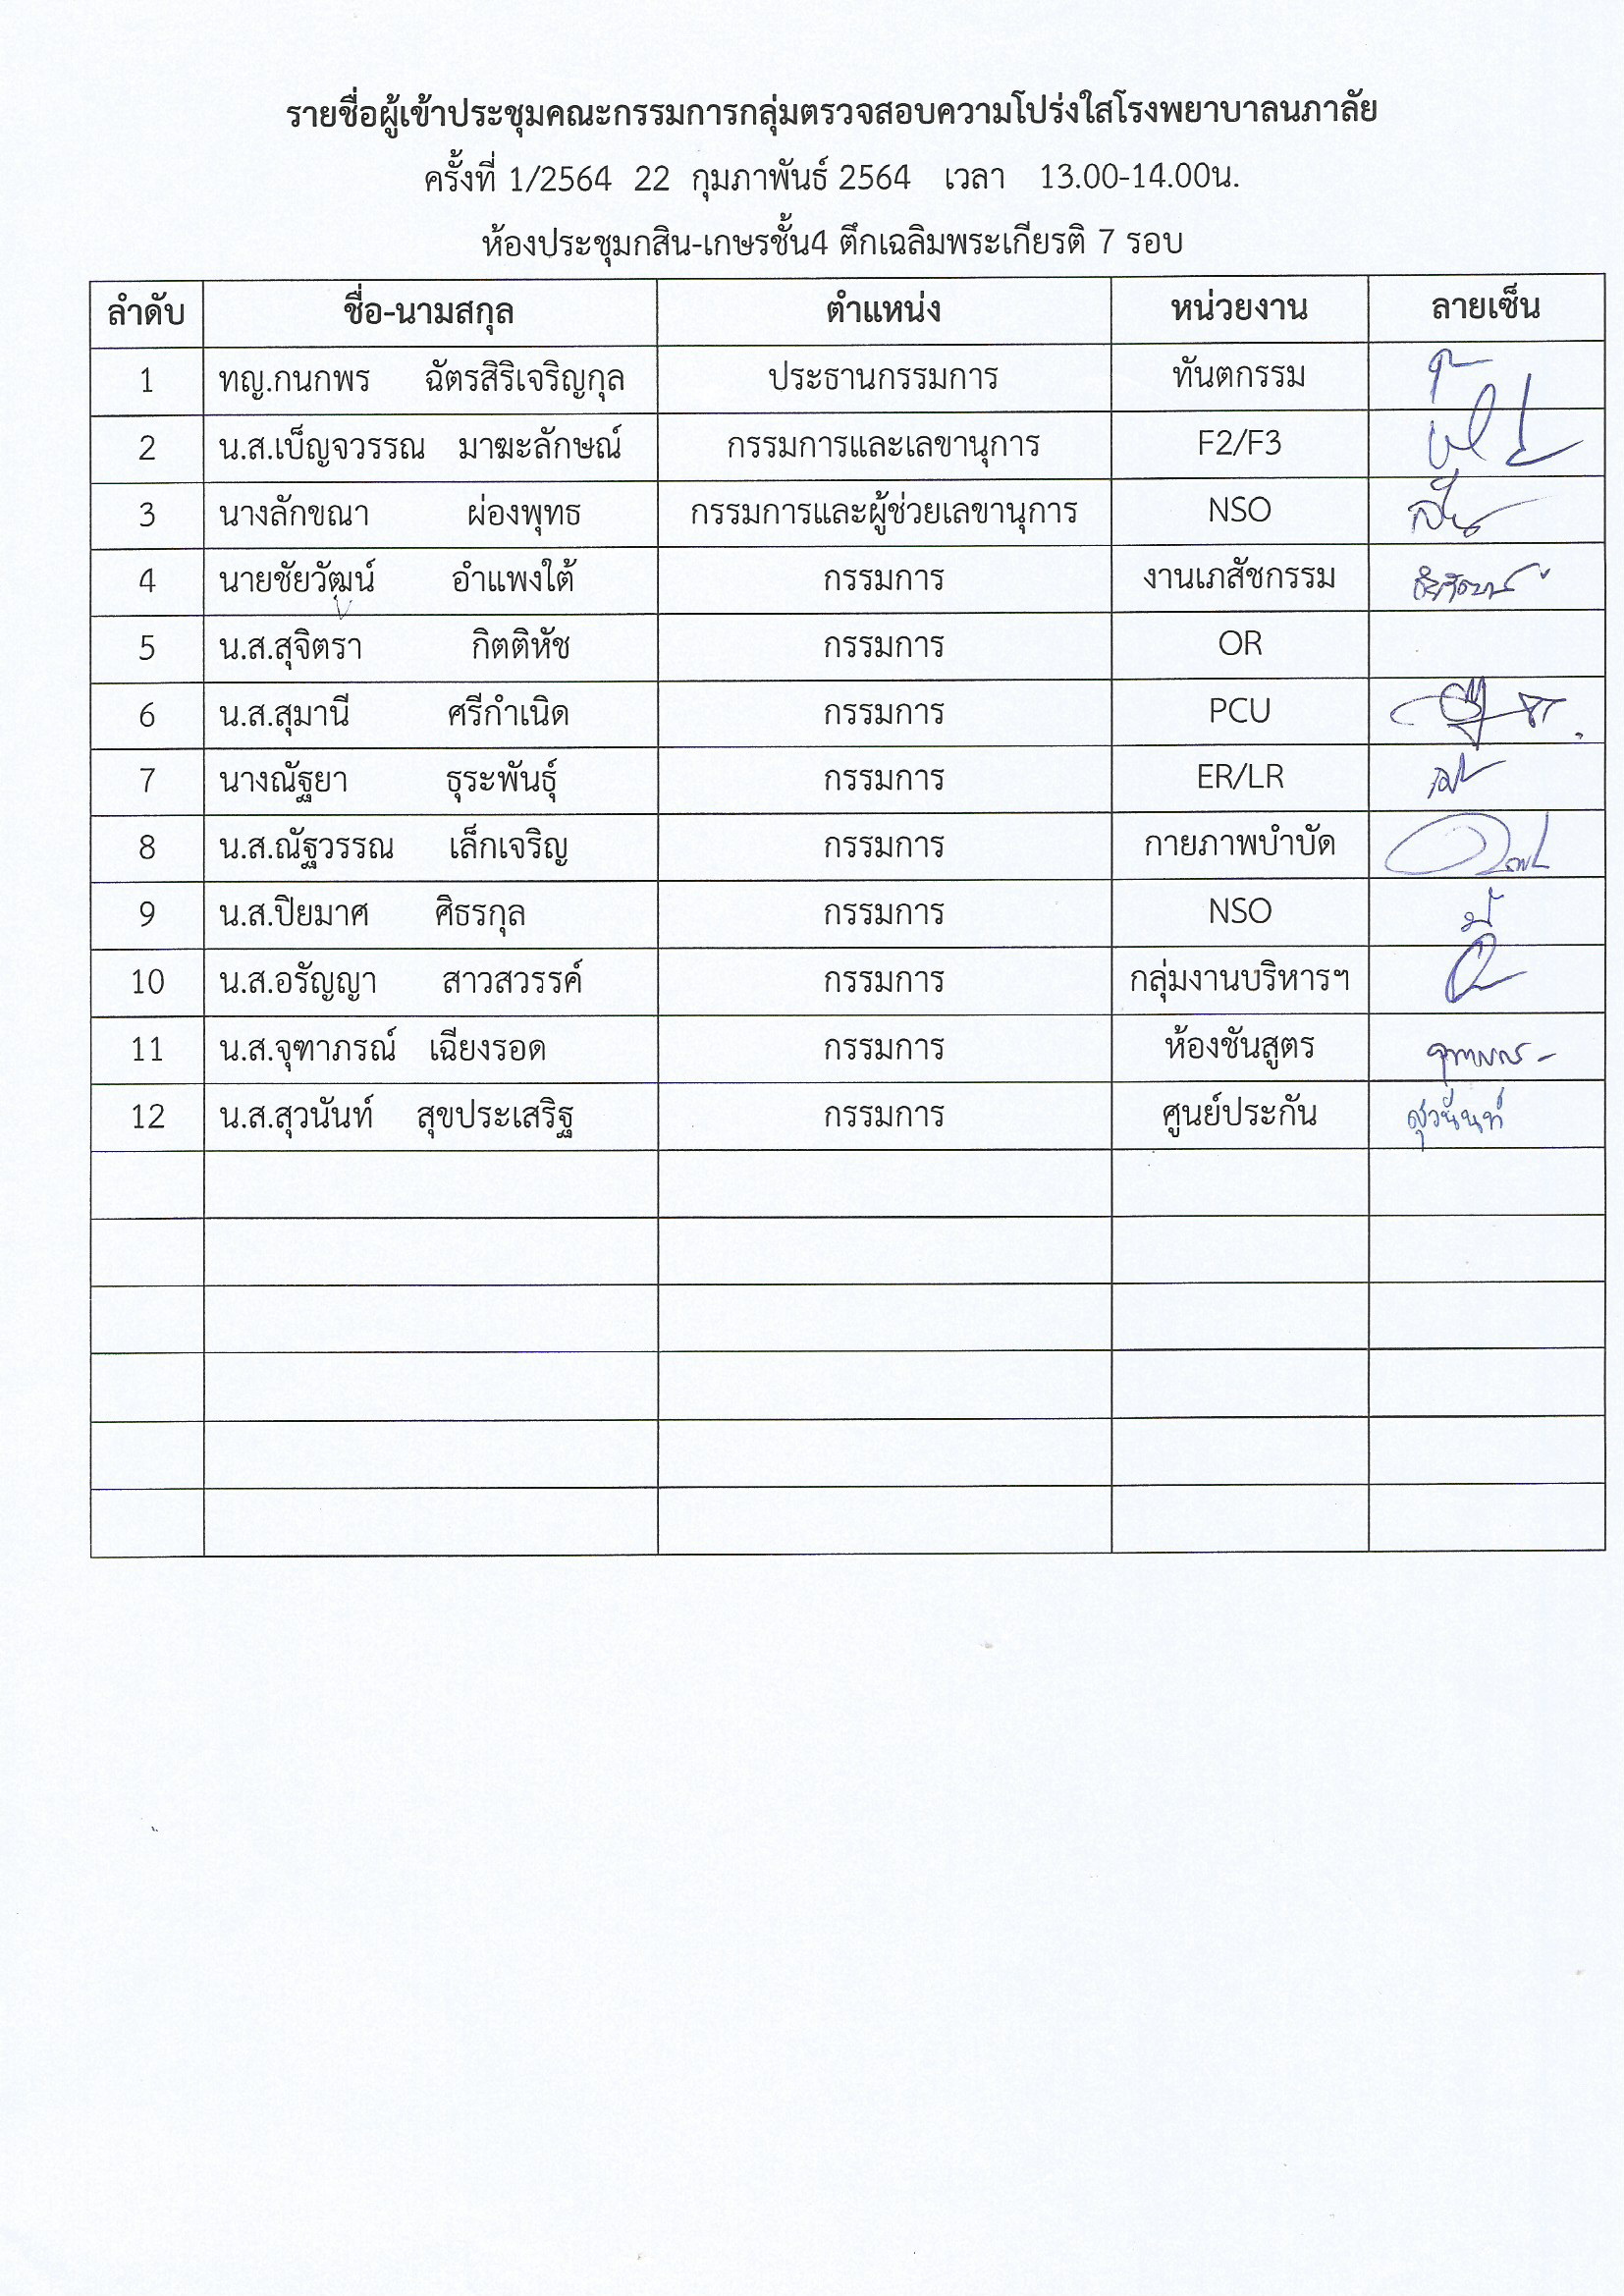 รายชื่อผู้เข้าประชุมคณะกรรมการกลุ่มตรวจสอบความโปร่งใสโรงพยาบาลนภาลัย
ครั้งที่ 1/2564 22 กุมภาพันธ์ 2564 เวลา 13.00-14.00น.
ห้องประชุมกสิน-เกษรชั้น4 ตึกเฉลิมพระเกียรติ 7 รอบ
ลำดับ ชื่อ-นามสกุล ตำแหน่ง หน่วยงาน ลายเซ็น
1 ทญ.กนกพร ฉัตรสิริเจริญกุล ประธานกรรมการ ทันตกรรม
2 น.ส.เบ็ญจวรรณ มาฆะลักษณ์ กรรมการและเลขานุการ F2/F3
3 นางลักขณา ผ่องพุทธ กรรมการและผู้ช่วยเลขานุการ NSO
4 นายชัยวัฒน์ อำแพงใต้ กรรมการ งานเภสัชกรรม
5 น.ส.สุจิตรา กิตติหัช กรรมการ OR
6 น.ส.สุมานี ศรีกำเนิด กรรมการ PCU
7 นางณัฐยา ธุระพันธุ์ กรรมการ ER/LR
8 น.ส.ณัฐวรรณ เล็กเจริญ กรรมการ กายภาพบำบัด
9 น.ส.ปิยมาศ ศิธรกุล กรรมการ NSO
10 น.ส.อรัญญา สาวสวรรค์ กรรมการ กลุ่มงานบริหารฯ
11 น.ส.จุฑาภรณ์ เฉียงรอด กรรมการ ห้องชันสูตร
12 น.ส.สุวนันท์ สุขประเสริฐ กรรมการ ศูนย์ประกัน สุวนันท์